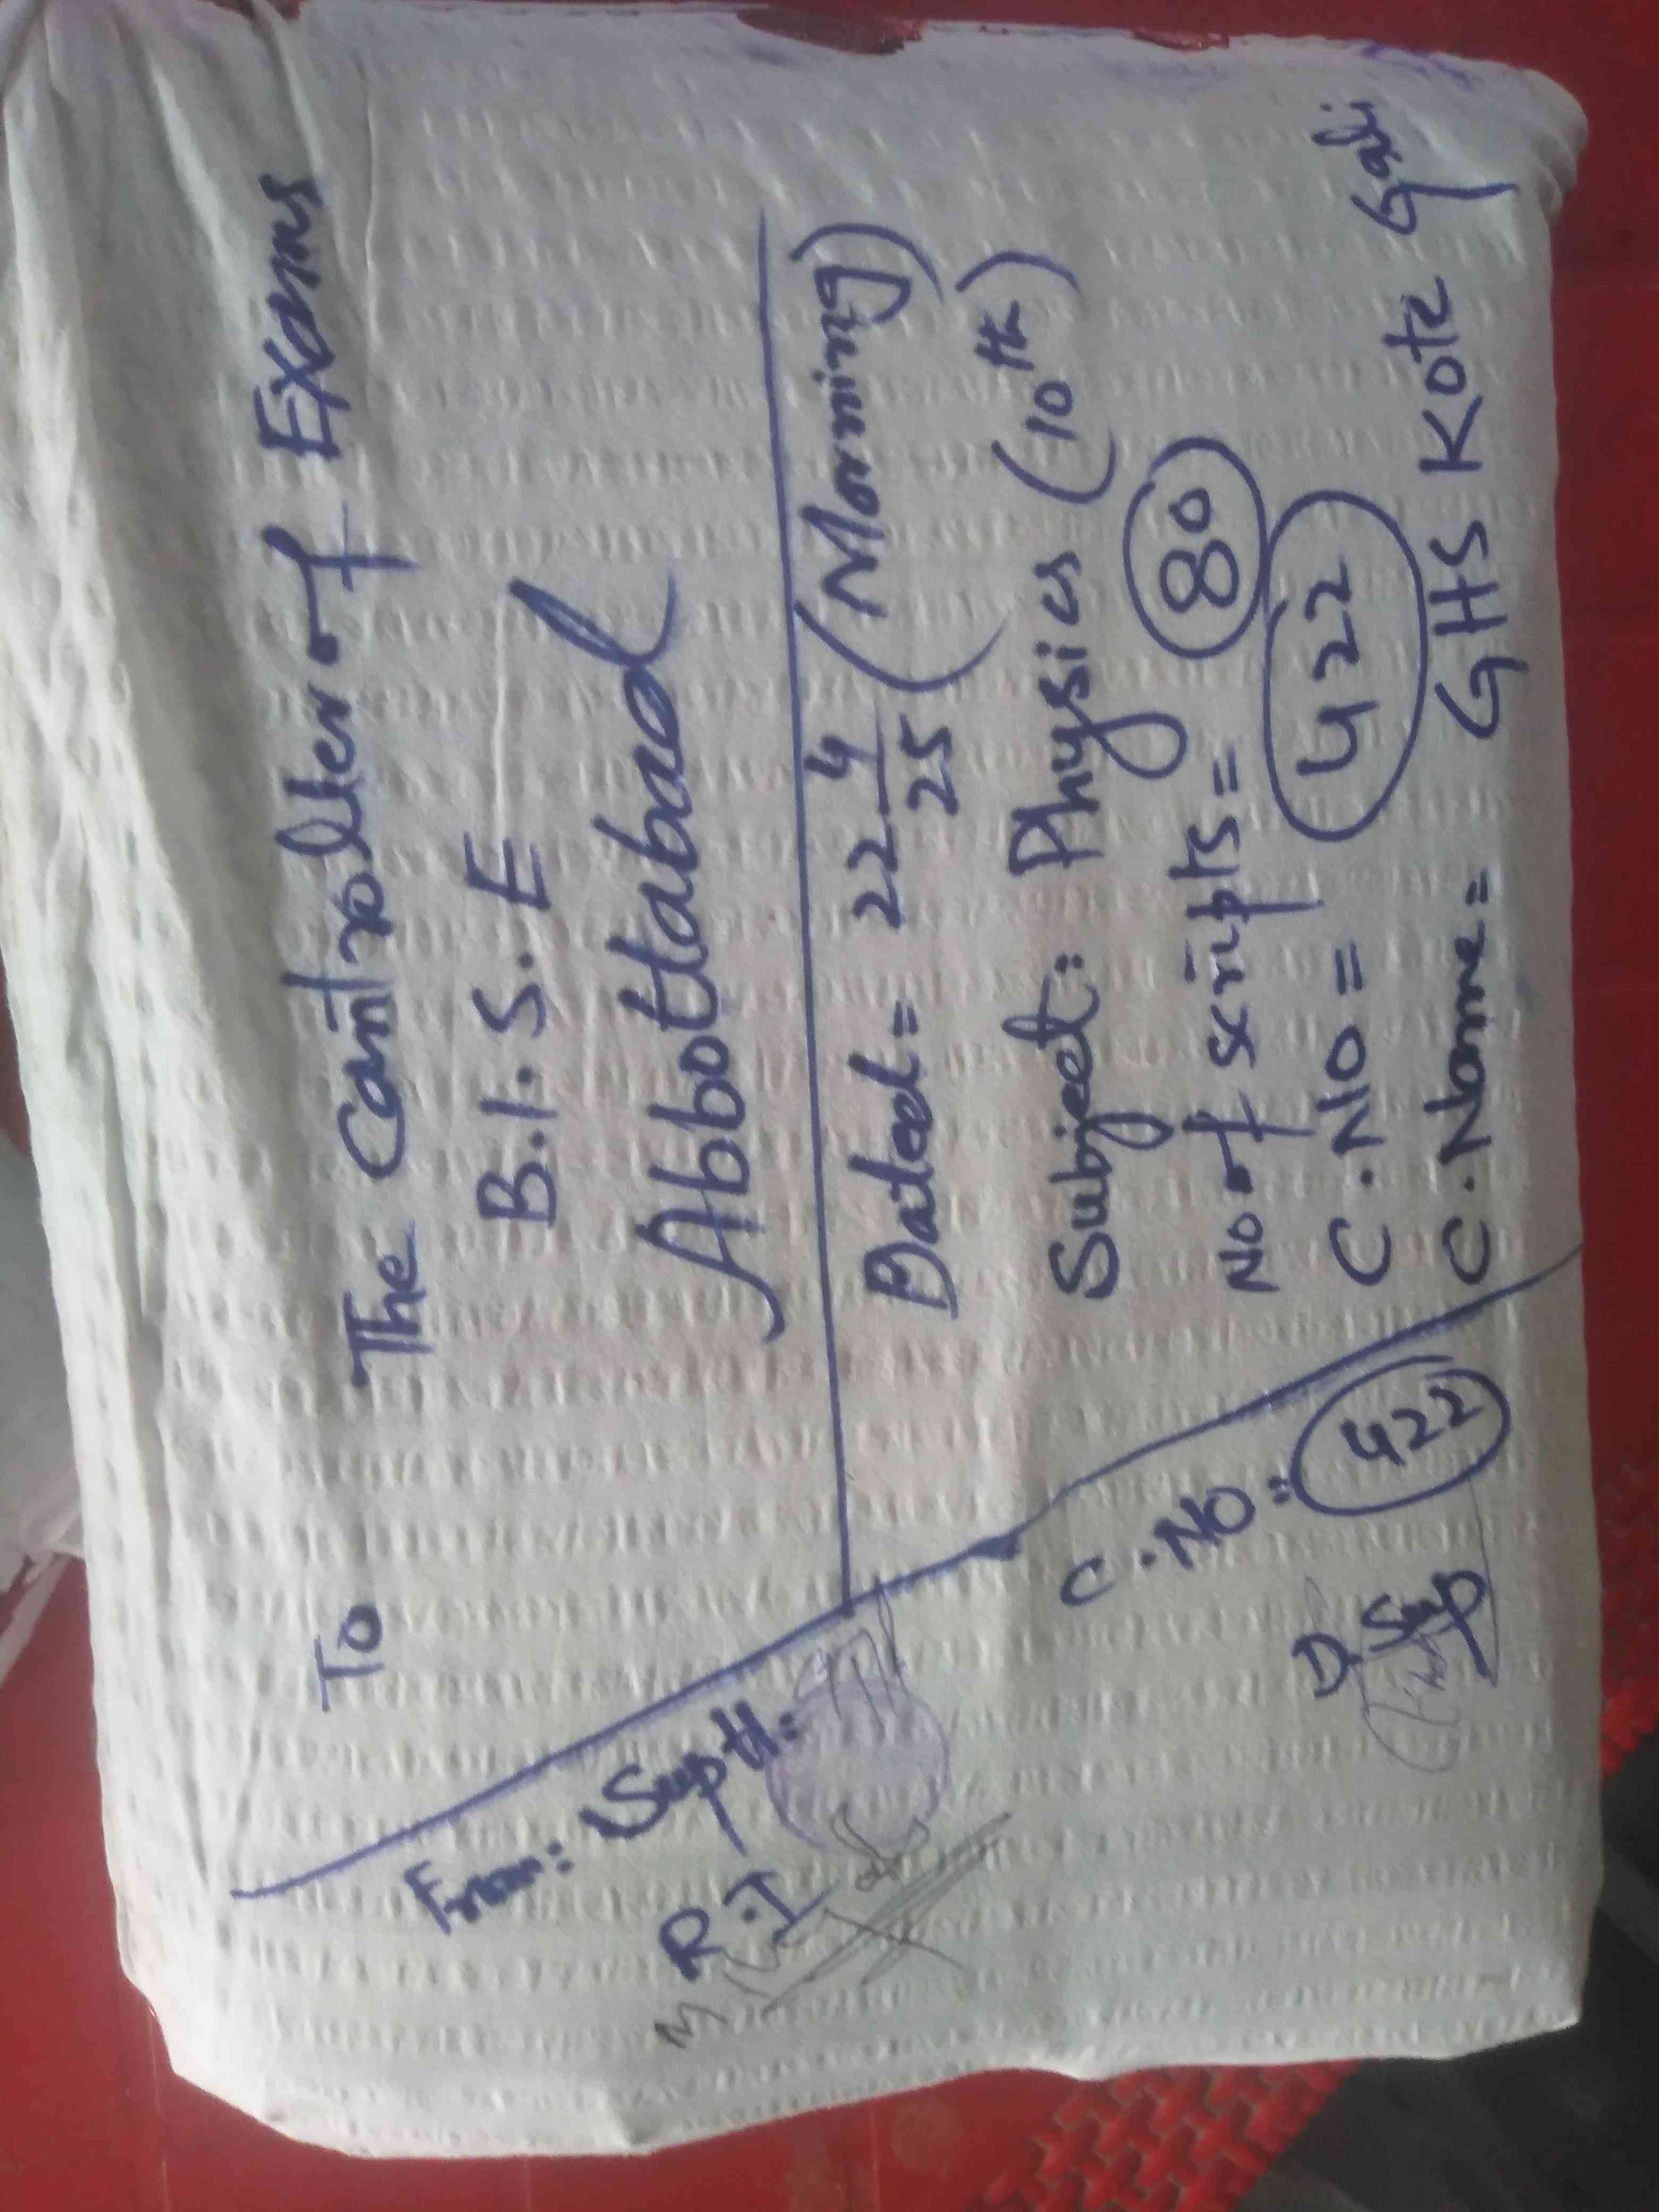 To
The Controller of Exams
B.I.S.E
Abbottabad
Dated = 22 4/25 (Morning)
Subject: Physics (10th)
No of scripts = 80
C.No = 422
C.Name = GHS Kotz Gali
From: Suptt:
R.I
C.No = 422
D. Sup